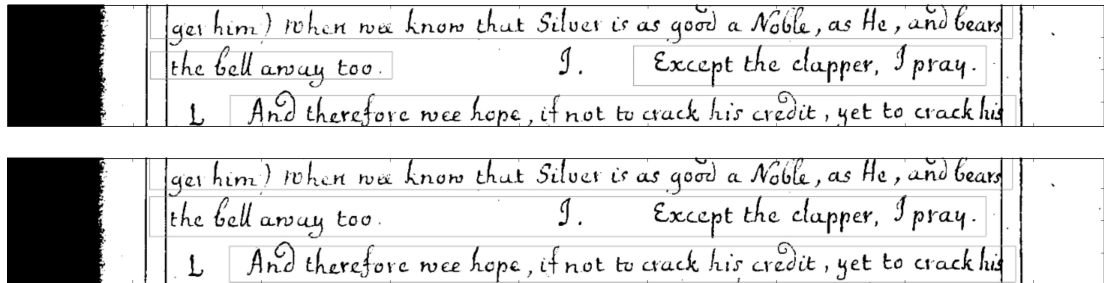 ger him) when wee know that Silver is as good a Noble, as He, and bears
the bell away too. I. Except the clapper, I pray.
L And therefore wee hope, if not to crack his credit, yet to crack his
ger him) when wee know that Silver is as good a Noble, as He, and bears
the bell away too. I. Except the clapper, I pray.
L And therefore wee hope, if not to crack his credit, yet to crack his